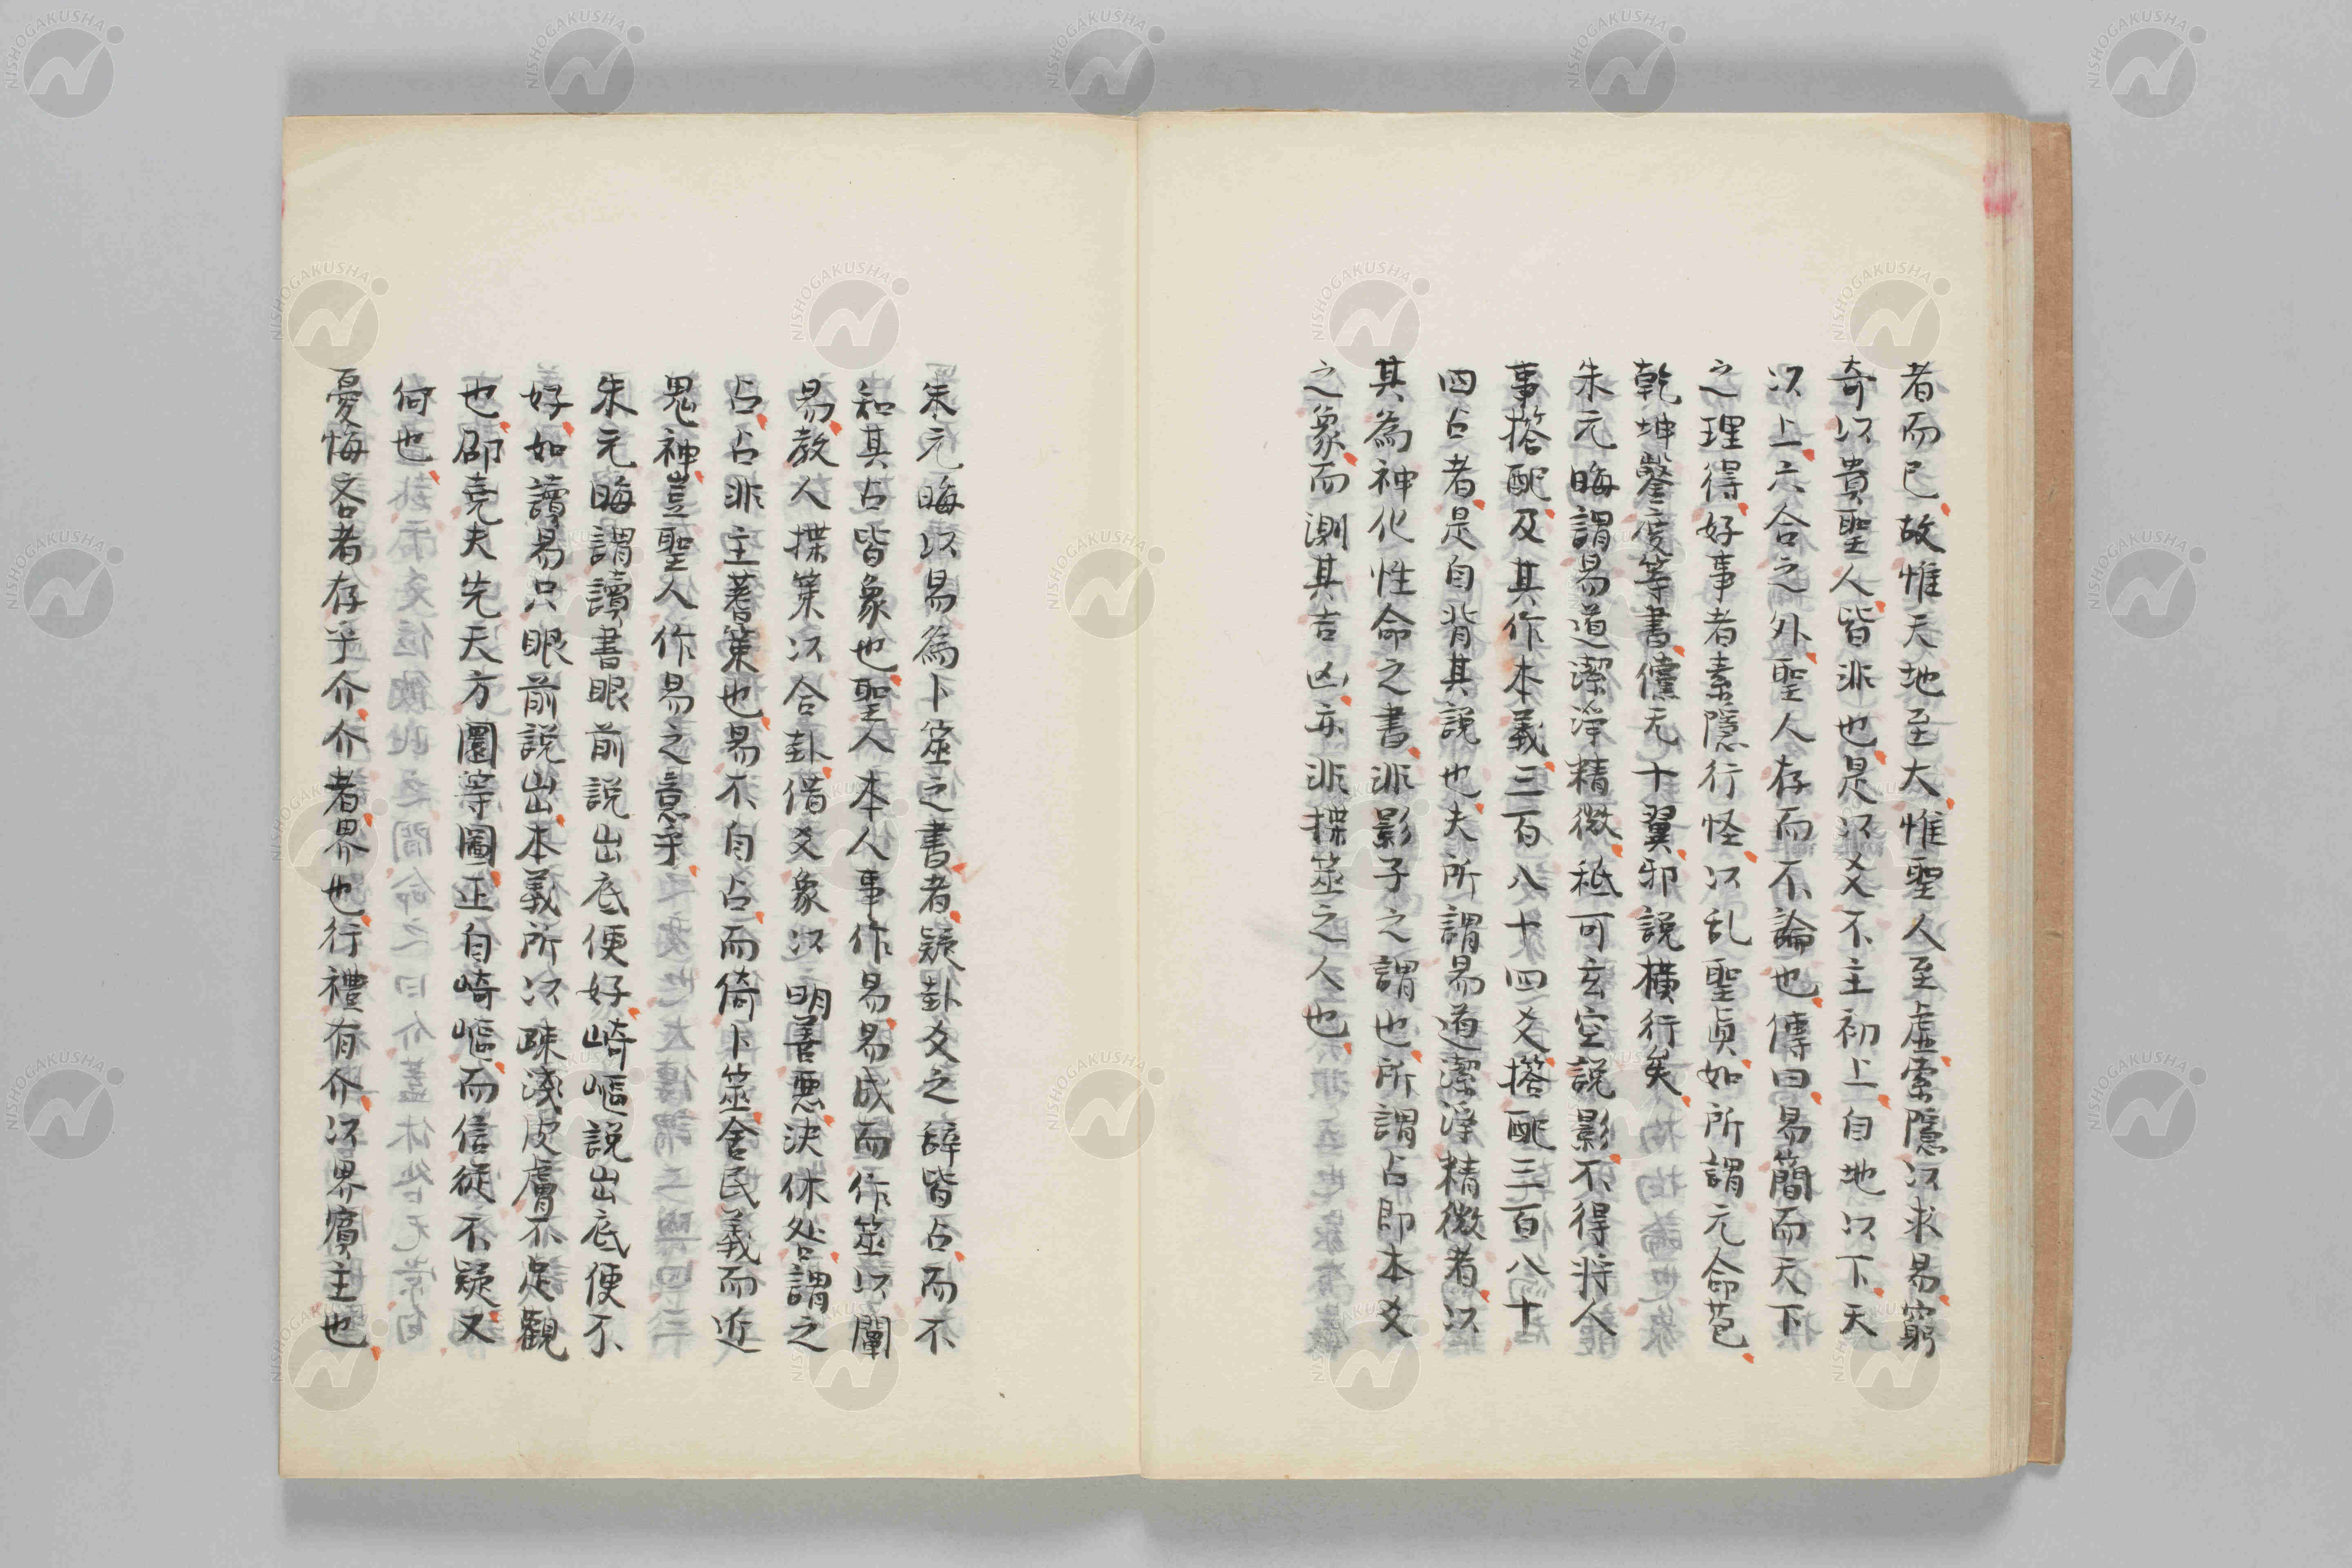 者而已故惟天地至大惟聖人至虛索隱以求易窮
奇以貴聖人皆非也是以爻不主初上自地以下天
以上六合之外聖人存而不論也傳曰易簡而天下
之理得好事者素隱行怪以乱聖眞如所謂元命苞
乾坤鑿度等書儻无十翼邪説横行矣
朱元晦謂易道潔淨精微秪可玄空説影不得将人
事撘配及其作本義三百八十四爻撘配三百八十
四占者是自背其説也夫所謂易道潔淨精微者以
其為神化性命之書非影子之謂也所謂占即本爻
之象而測其吉凶亦非揲筮之人也
朱元晦以易為卜筮之書者疑卦爻之辞皆占而不
知其占皆象也聖人本人事作易易成而作筮以闡
易教人揲策以合卦借爻象以明善悪決休咎謂之
占占非主蓍策也易不自占而倚卜筮舍民義而近
鬼神豈聖人作易之意乎
朱元晦謂讀書眼前説出底便好崎嶇説出底便不
好如讀易只眼前説出本義所以疎淺皮膚不足觀
也邵尭夫先天方圓等圖正自崎嶇而信從不疑又
何也
憂悔吝者存乎介介者界也行禮有介以界賓主也
NISHOGAKUSHA